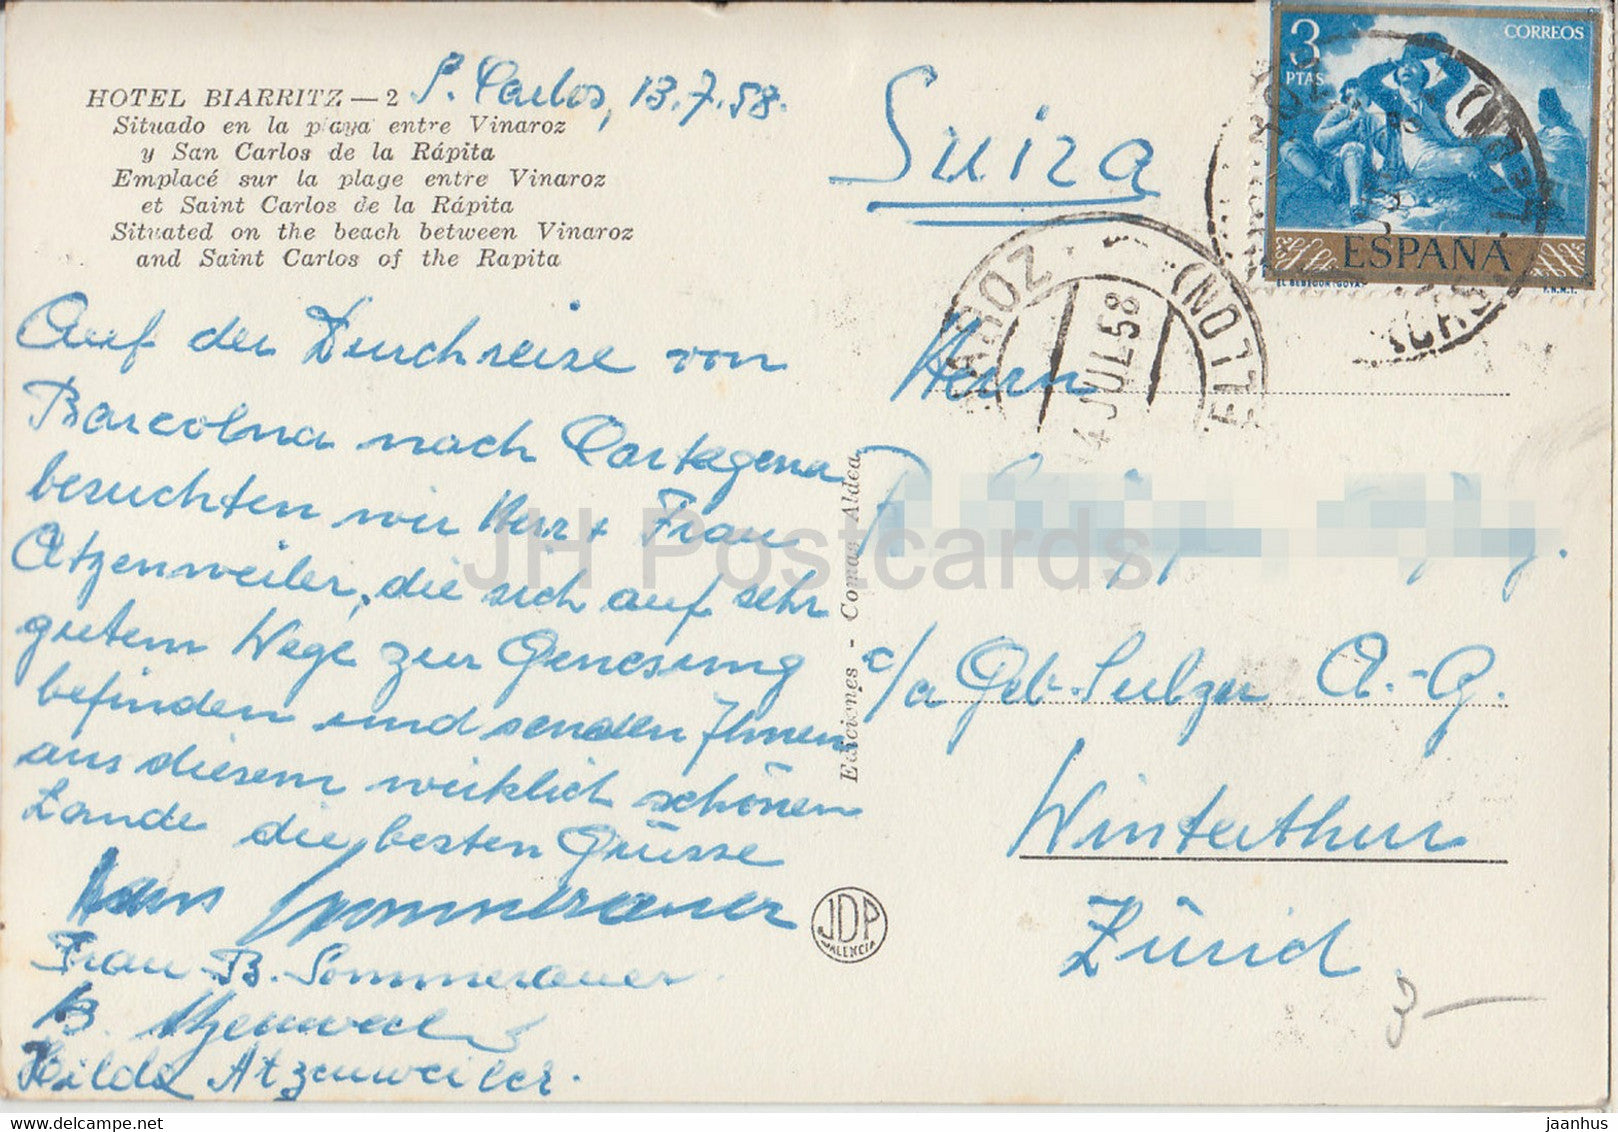 HOTEL BIARRITZ — 2
Situado en la playa entre Vinaroz
y San Carlos de la Rápita
Emplacé sur la plage entre Vinaroz
et Saint Carlos de la Rápita
Situated on the beach between Vinaroz
and Saint Carlos of the Rapita
S. Carlos, 13.7.58.
Auf der Durchreise von
Barcelona nach Cartagena
besuchten wir Herr + Frau
Atzenweiler, die sich auf sehr
gutem Wege zur Genesung
befinden und senden Ihnen
aus diesem wirklich schönen
Lande die besten Grüsse
Hans Sommerauer
Frau B. Sommerauer
B. Atzenweiler
Hilda Atzenweiler.
Ediciones - Comas Aldea
JDP
VALENCIA
Suiza
3
PTAS
CORREOS
ESPAÑA
EL BEBEDOR (GOYA)
F.N.M.T.
VINAROZ
14 JUL 58
(CASTELLON)
Herrn
c/a Geb. Sulzer A.-G.
Winterthur
Zürich
3 —
JH Postcards
delcampe.net
jaanhus